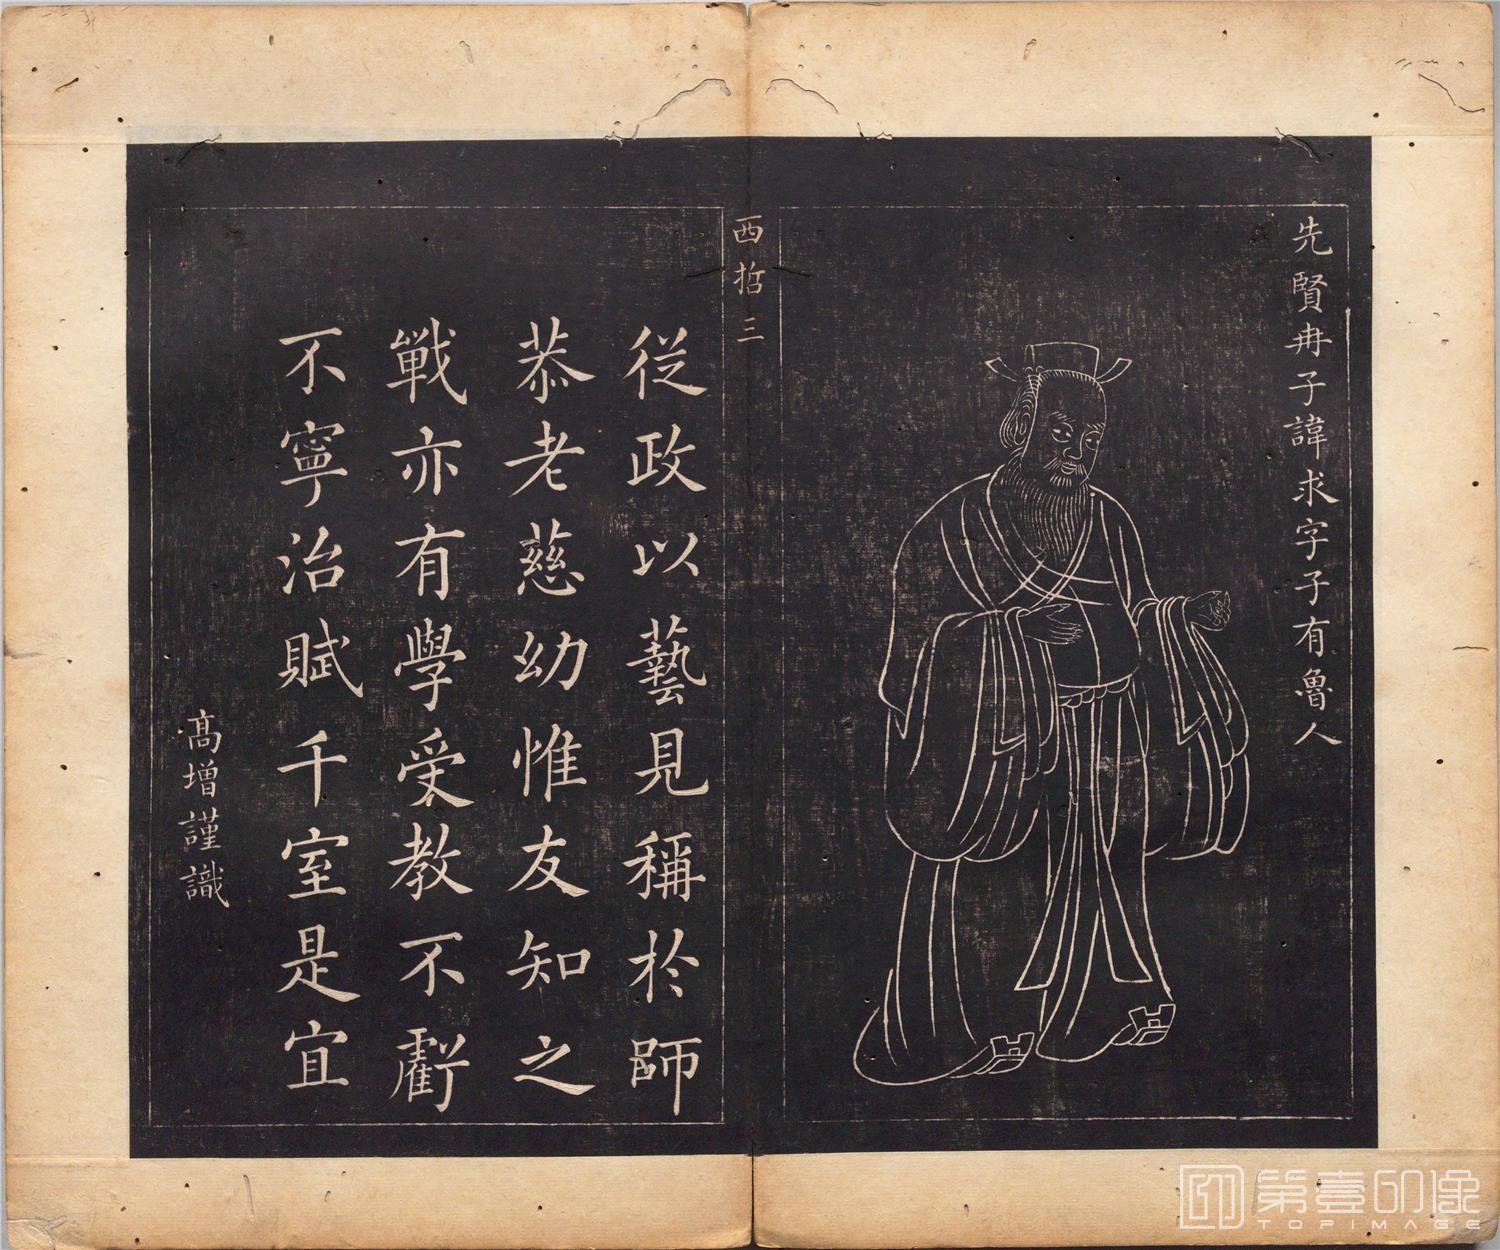 先賢冉子諱求字子有魯人
西哲三
從政以藝見稱於師
恭老慈幼惟友知之
戰亦有學受教不虧
不寧治賦千室是宜
高增謹識
第壹印像
TOPIMAGE